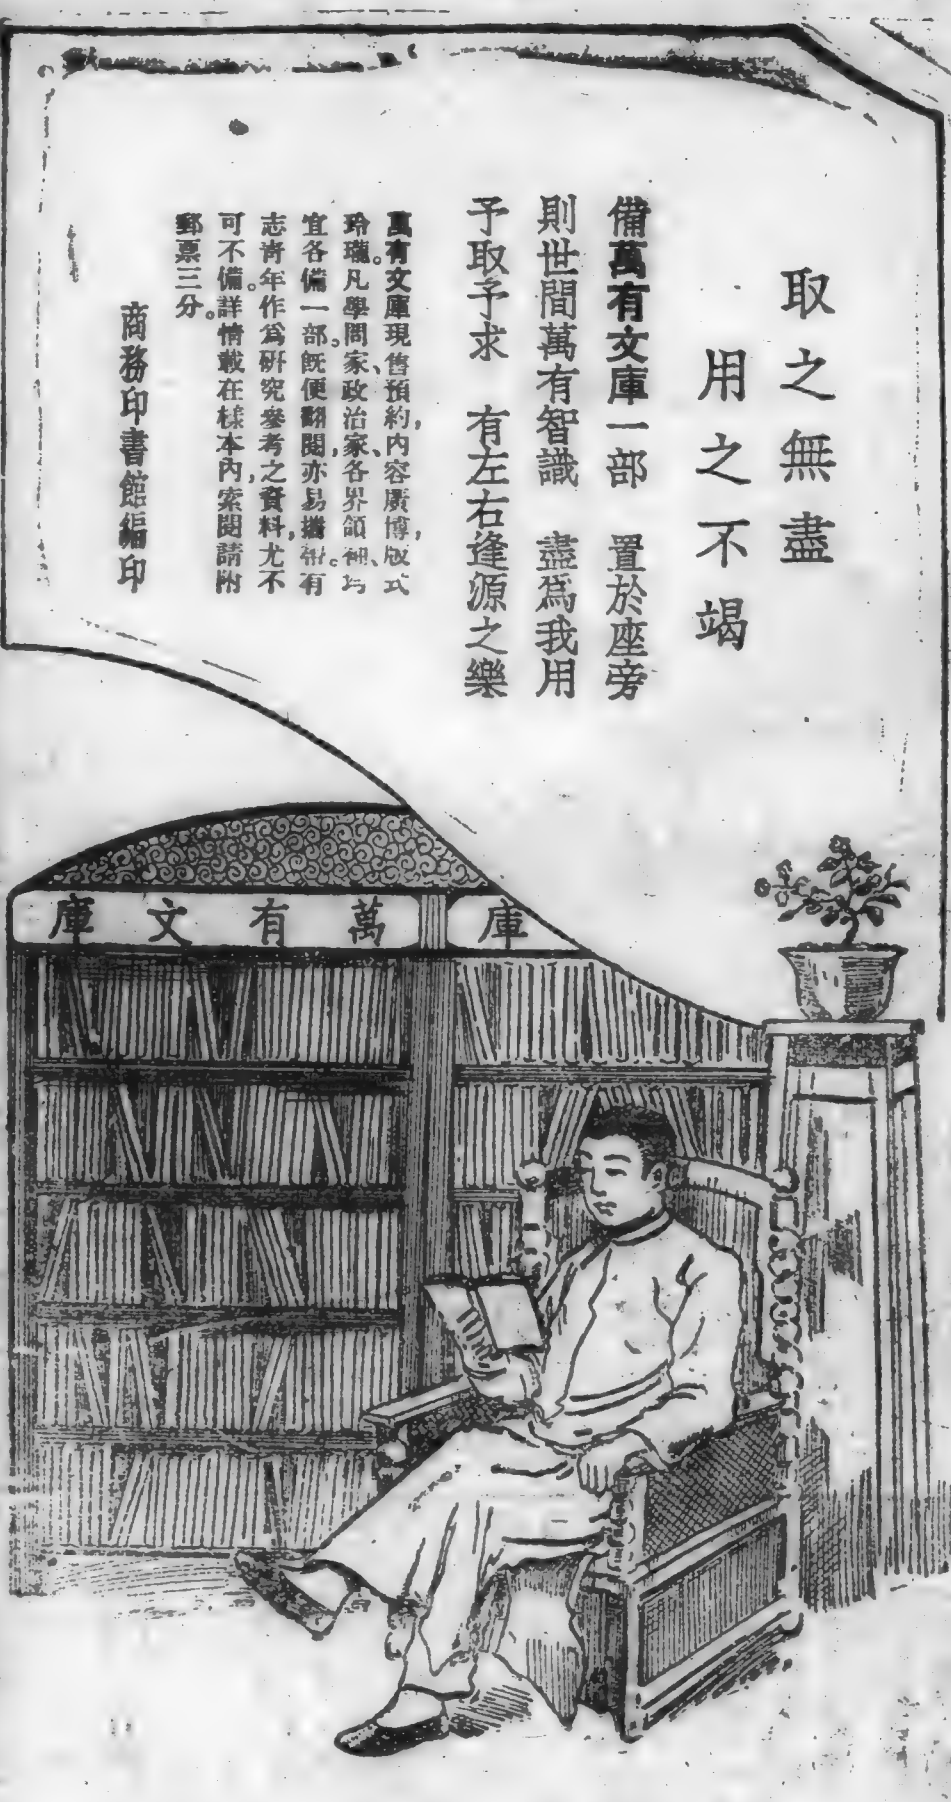 取之無盡
用之不竭
備萬有文庫一部　置於座旁
則世間萬有智識　盡爲我用
予取予求　有左右逢源之樂
萬有文庫現售預約，內容廣博，版式
玲瓏。凡學問家、政治家、各界領袖、均
宜各備一部。既便翻閱，亦易攜帶。有
志靑年作爲硏究參考之資料，尤不
可不備。詳情載在樣本內，索閱請附
郵票三分。
商務印書館編印
庫文有萬
庫